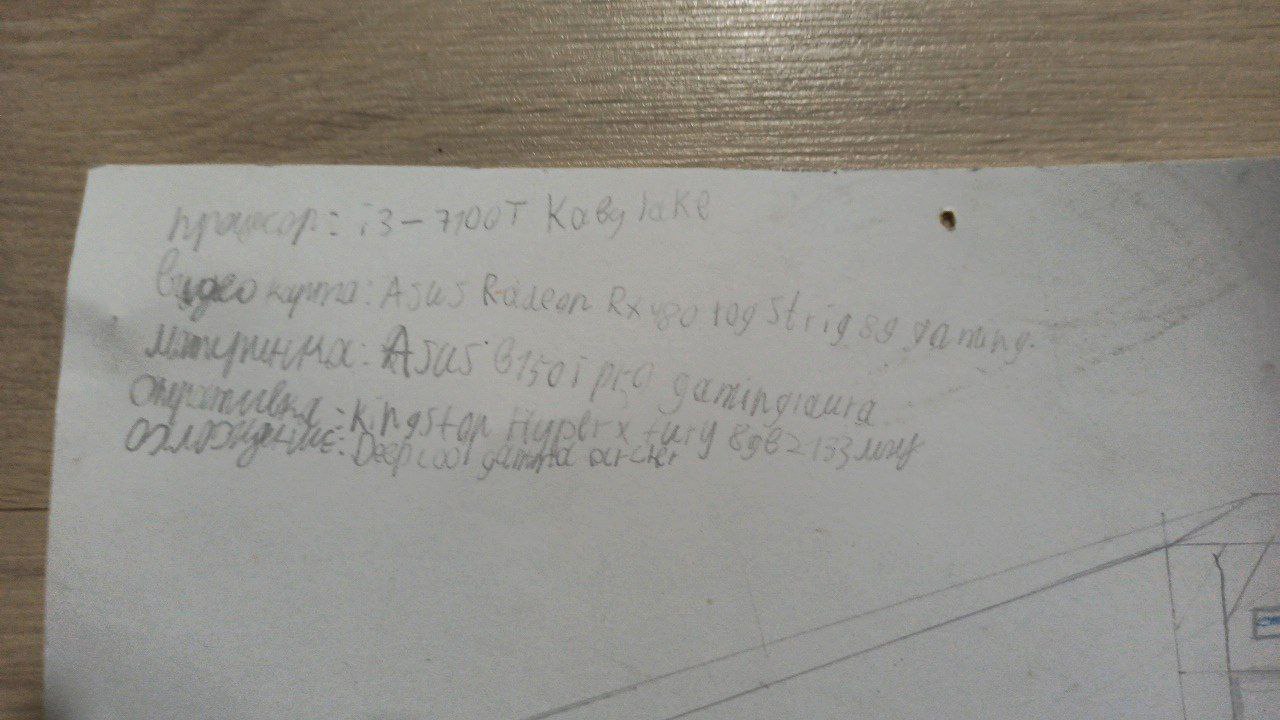 процесор: i3-7100T Kaby lake
Видео карта: Asus Radeon Rx 480 rog Strig 8g gaming.
Материнка: Asus B150i pro gaming/aura
Оперативка - Kingston Hyperx fury 8gB 2133 мгц
Охлождение: Deepcool gamma archer